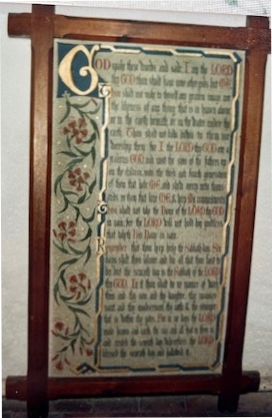 GOD spake these words and said; I am the LORD
thy GOD thou shalt have none other gods but ME
Thou shalt not make to thyself any graven image nor
the likeness of any thing that is in heaven above
or in the earth beneath, or in the water under the
earth. Thou shalt not bow down to them nor
worship them for I the LORD thy GOD am a
jealous GOD and visit the sins of the fathers up
on the children unto the third and fourth generation
of them that hate ME and shew mercy unto thous
ands in them that love ME & keep My commandments
Thou shalt not take the Name of the LORD thy GOD
in vain: for the LORD will not hold him guiltless
that taketh His Name in vain.
Remember that thou keep holy the Sabbath day. Six
days shalt thou labour and do all that thou hast to
do but the seventh day is the Sabbath of the LORD
thy GOD. In it thou shalt do no manner of work
thou and thy son and thy daughter, thy manser
vant and thy maidservant thy cattle & the stranger
that is within thy gates. For in six days the LORD
made heaven and earth the sea and all that in them is
and rested the seventh day wherefore the LORD
blessed the seventh day and hallowed it.